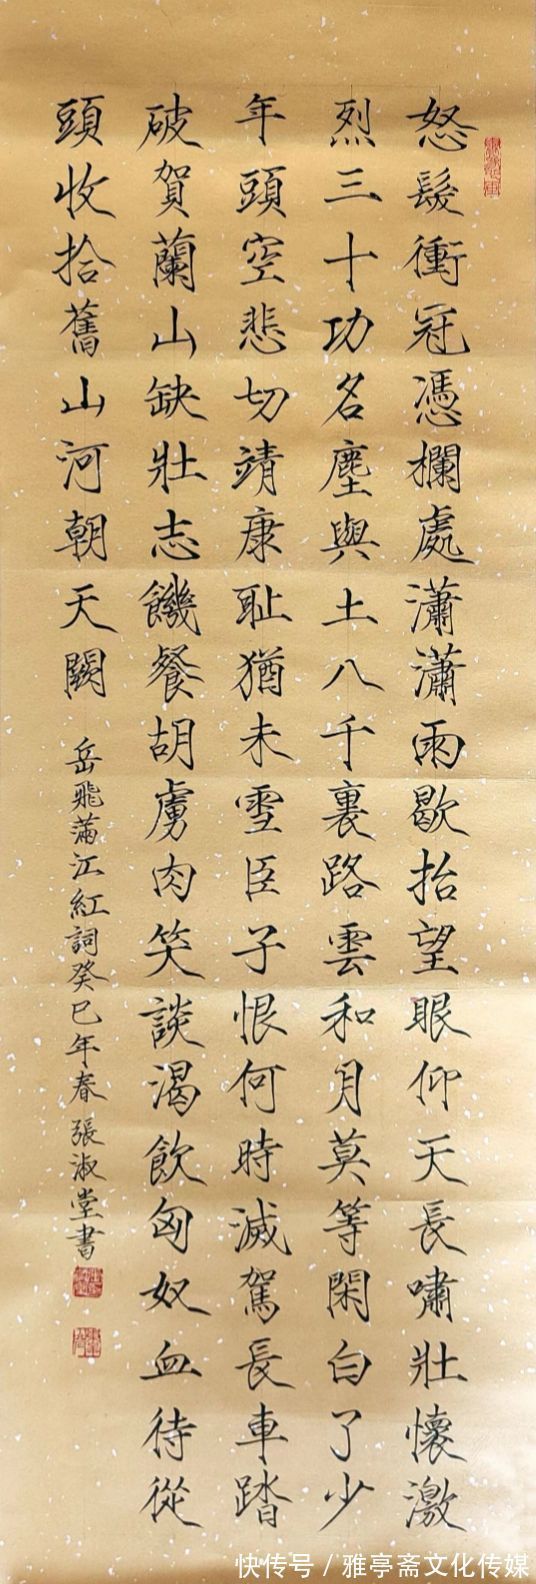 怒髮衝冠憑欄處瀟瀟雨歇抬望眼仰天長嘯壯懷激
烈三十功名塵與土八千裏路雲和月莫等閑白了少
年頭空悲切靖康恥猶未雪臣子恨何時滅駕長車踏
破賀蘭山缺壯志饑餐胡虜肉笑談渴飲匈奴血待從
頭收拾舊山河朝天闕
岳飛滿江紅詞癸巳年春張淑堂書
快传号/雅亭斋文化传媒